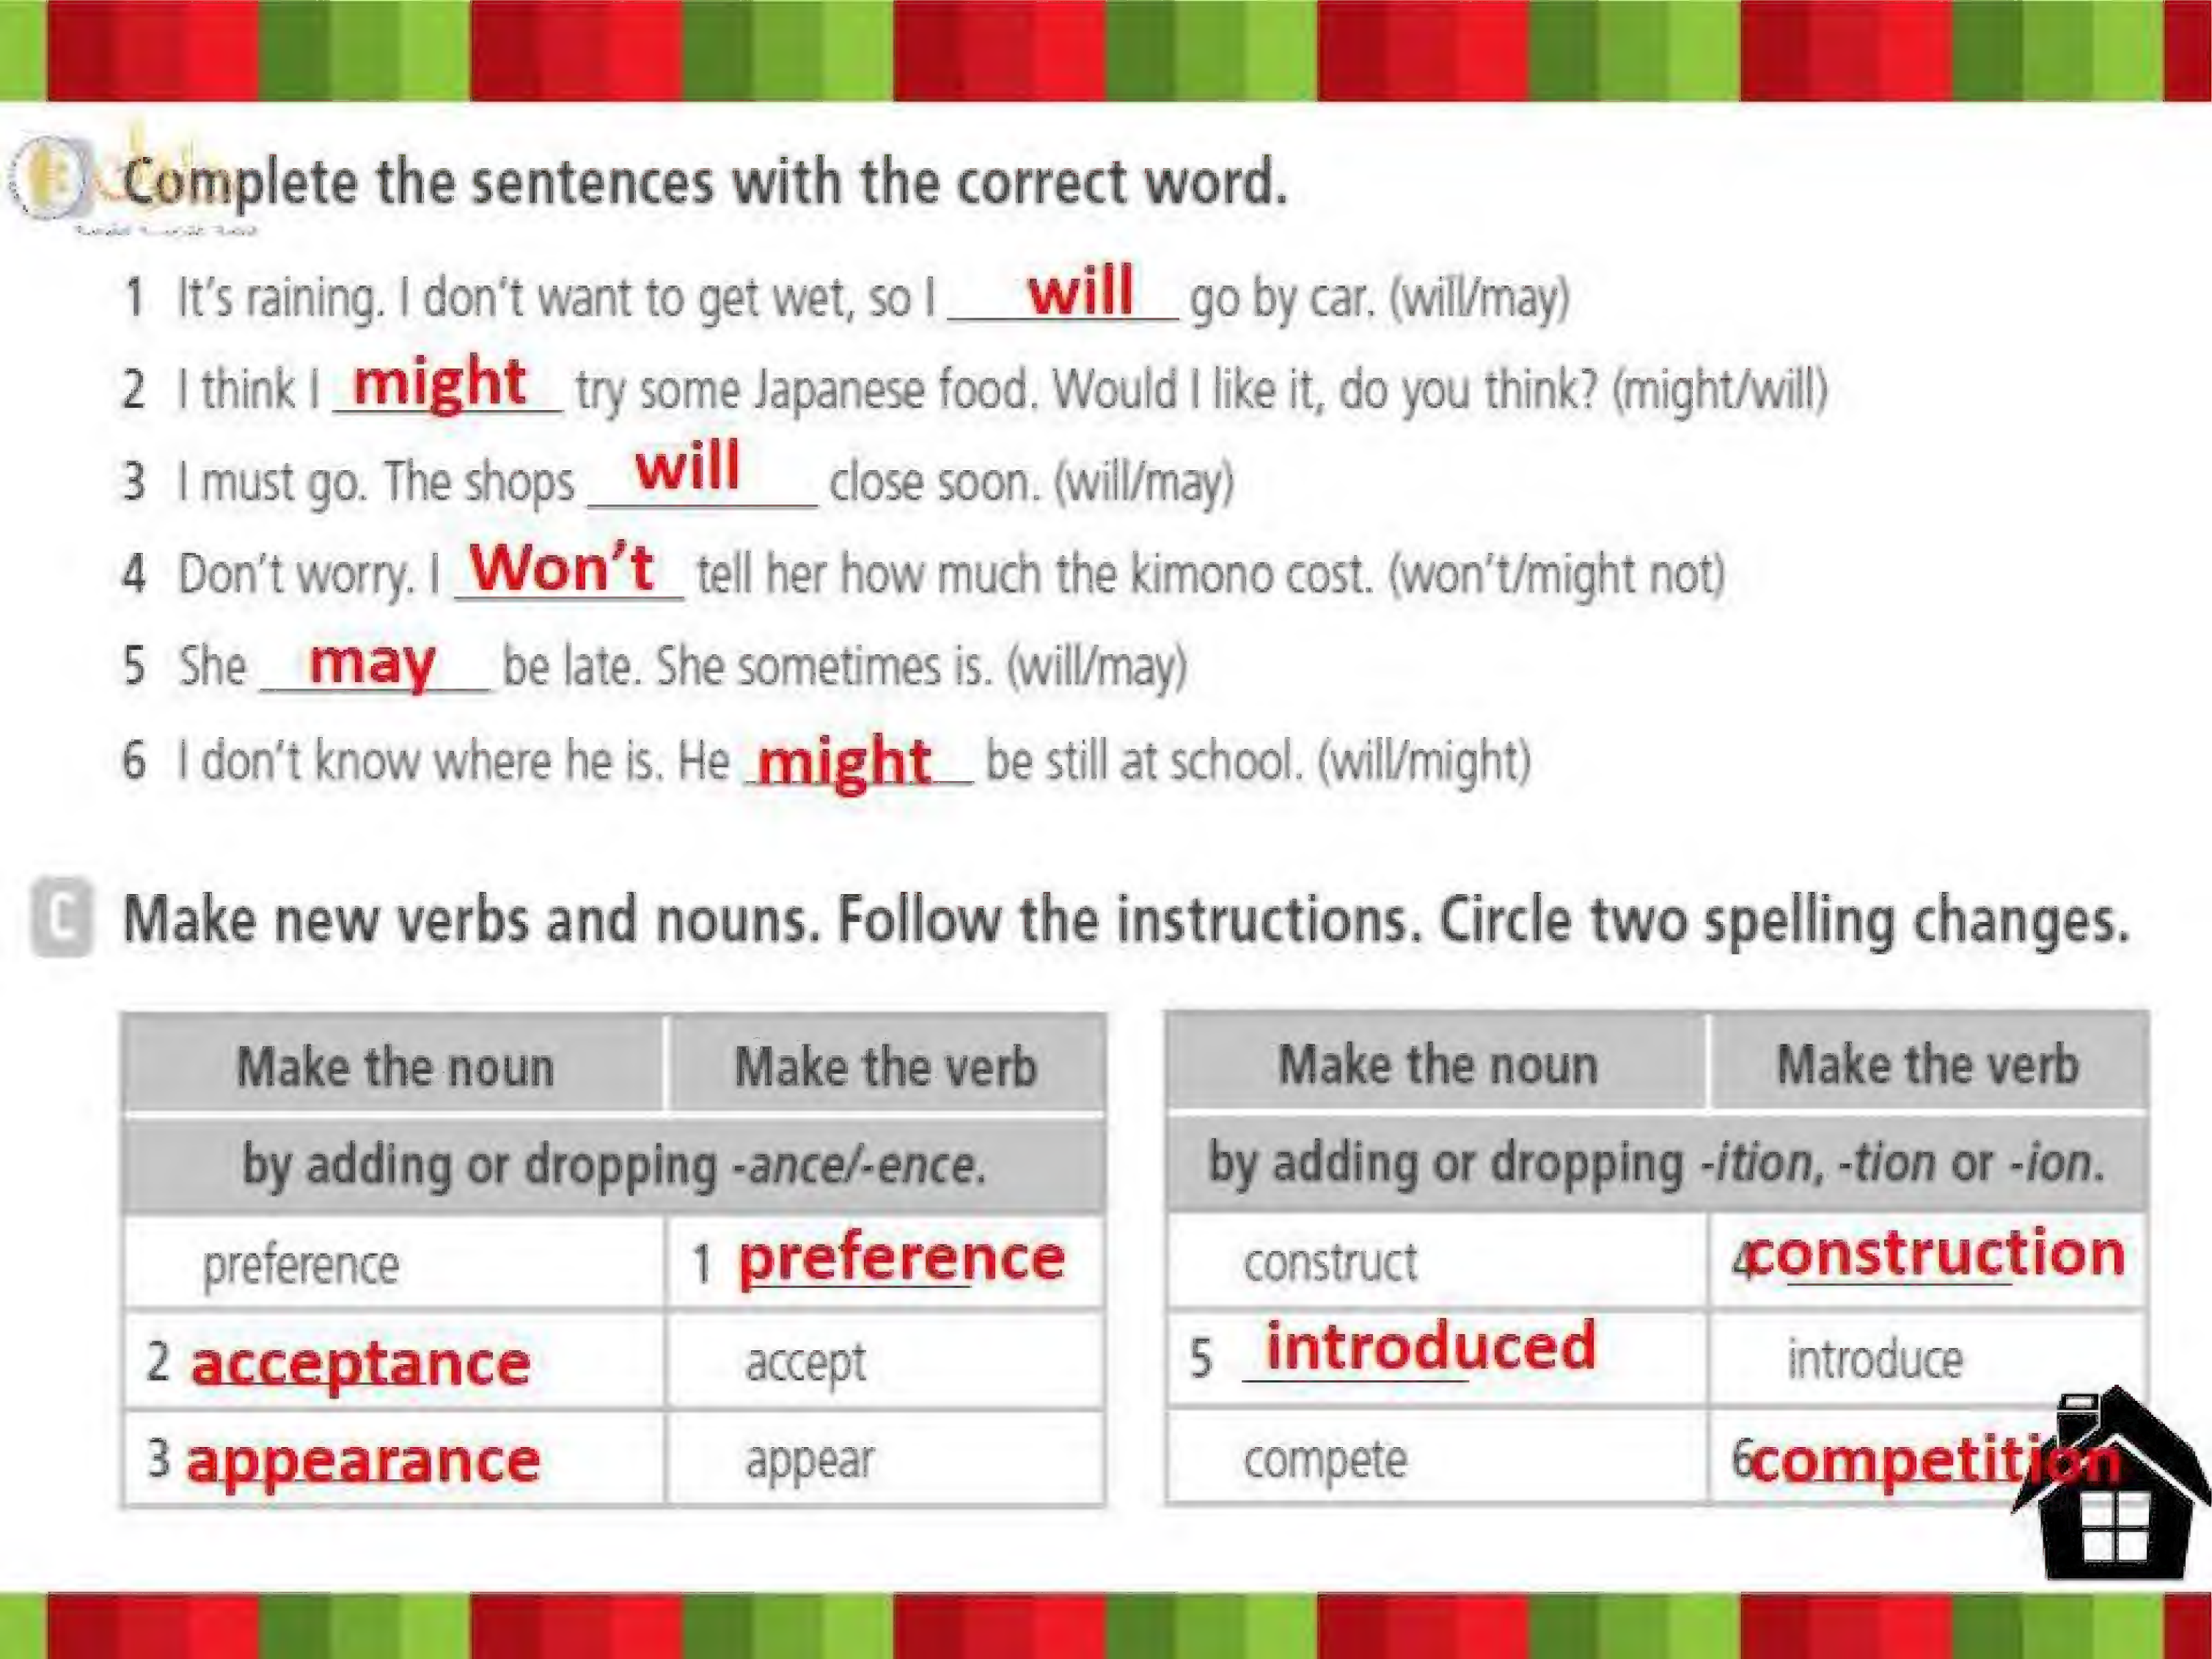 Complete the sentences with the correct word.
1 It's raining. I don't want to get wet, so I will go by car. (will/may)
2 I think I might try some Japanese food. Would I like it, do you think? (might/will)
3 I must go. The shops will close soon. (will/may)
4 Don't worry. I Won't tell her how much the kimono cost. (won't/might not)
5 She may be late. She sometimes is. (will/may)
6 I don't know where he is. He might be still at school. (will/might)
C Make new verbs and nouns. Follow the instructions. Circle two spelling changes.
Make the noun Make the verb
by adding or dropping -ance/-ence.
preference 1 preference
2 acceptance accept
3 appearance appear
Make the noun Make the verb
by adding or dropping -ition, -tion or -ion.
construct 4 construction
5 introduced introduce
compete 6 competition